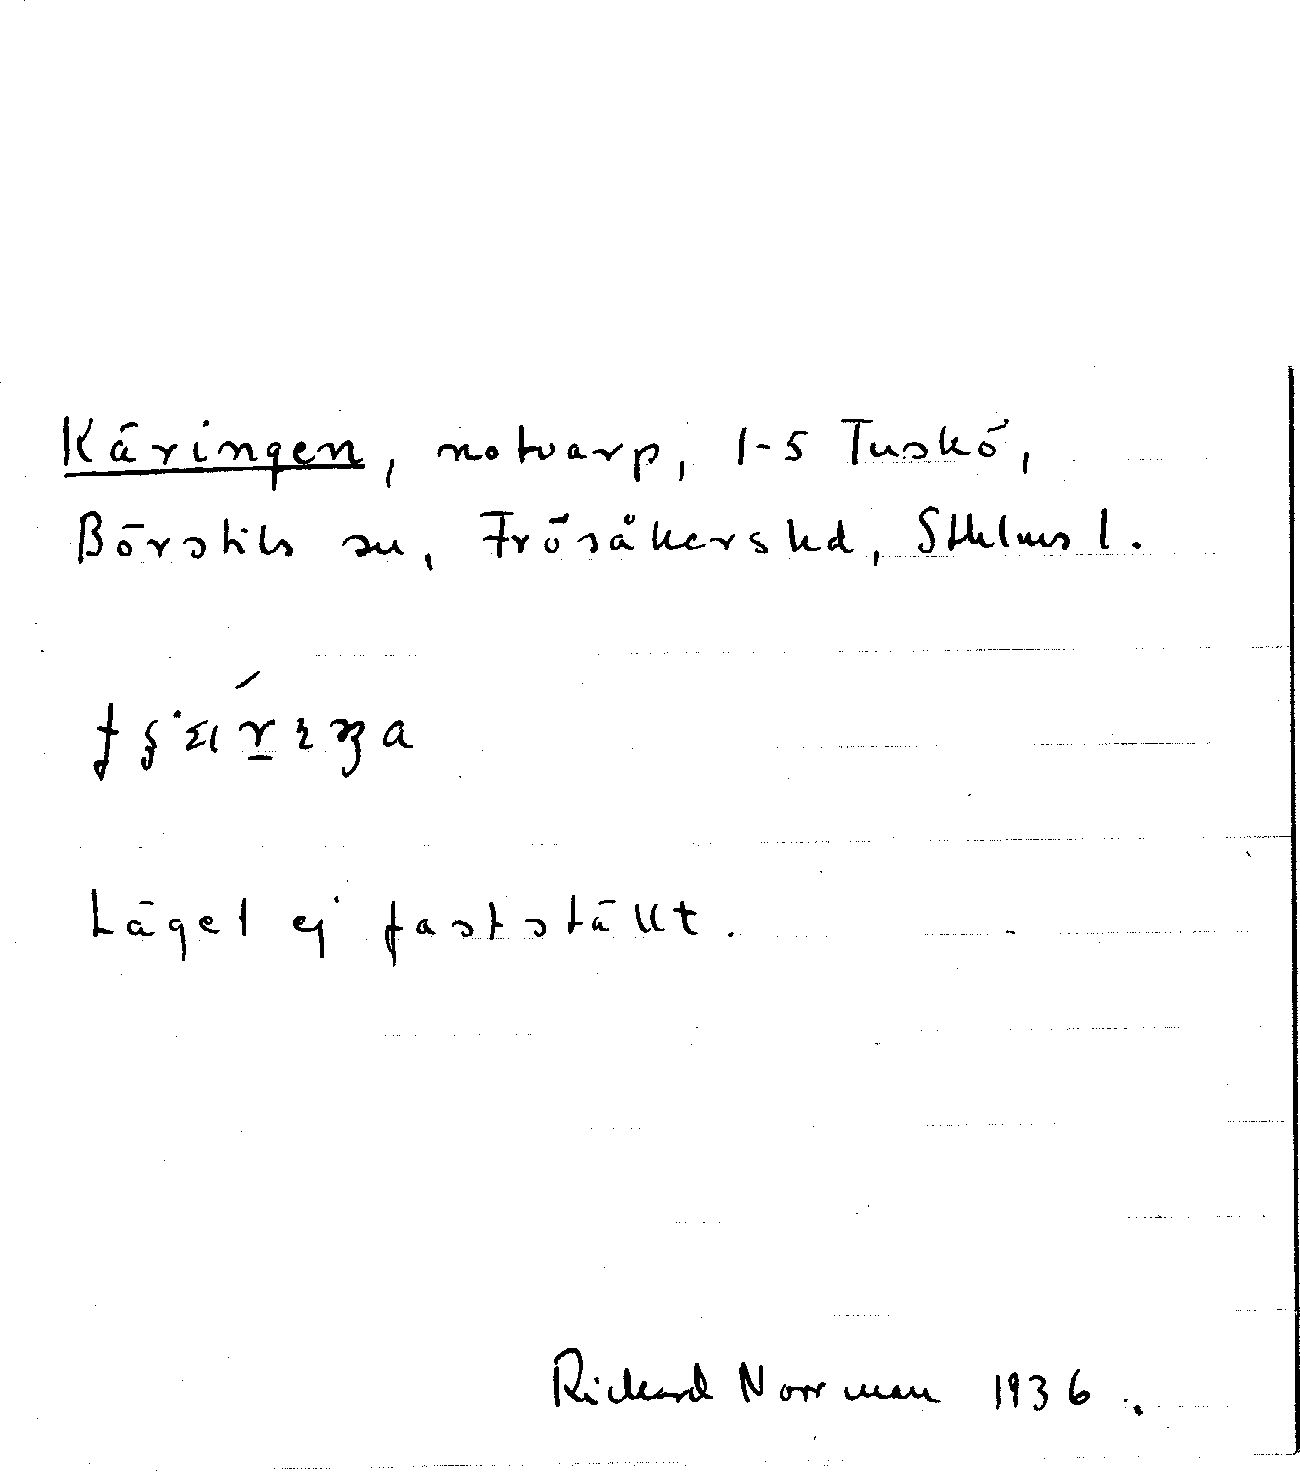 Käringen, notvarp, 1-5 Tuskö,
Börstils sn, Frösåkers hd, Sthlms l.
Läget ej fastställt.
Richard Norrman 1936.